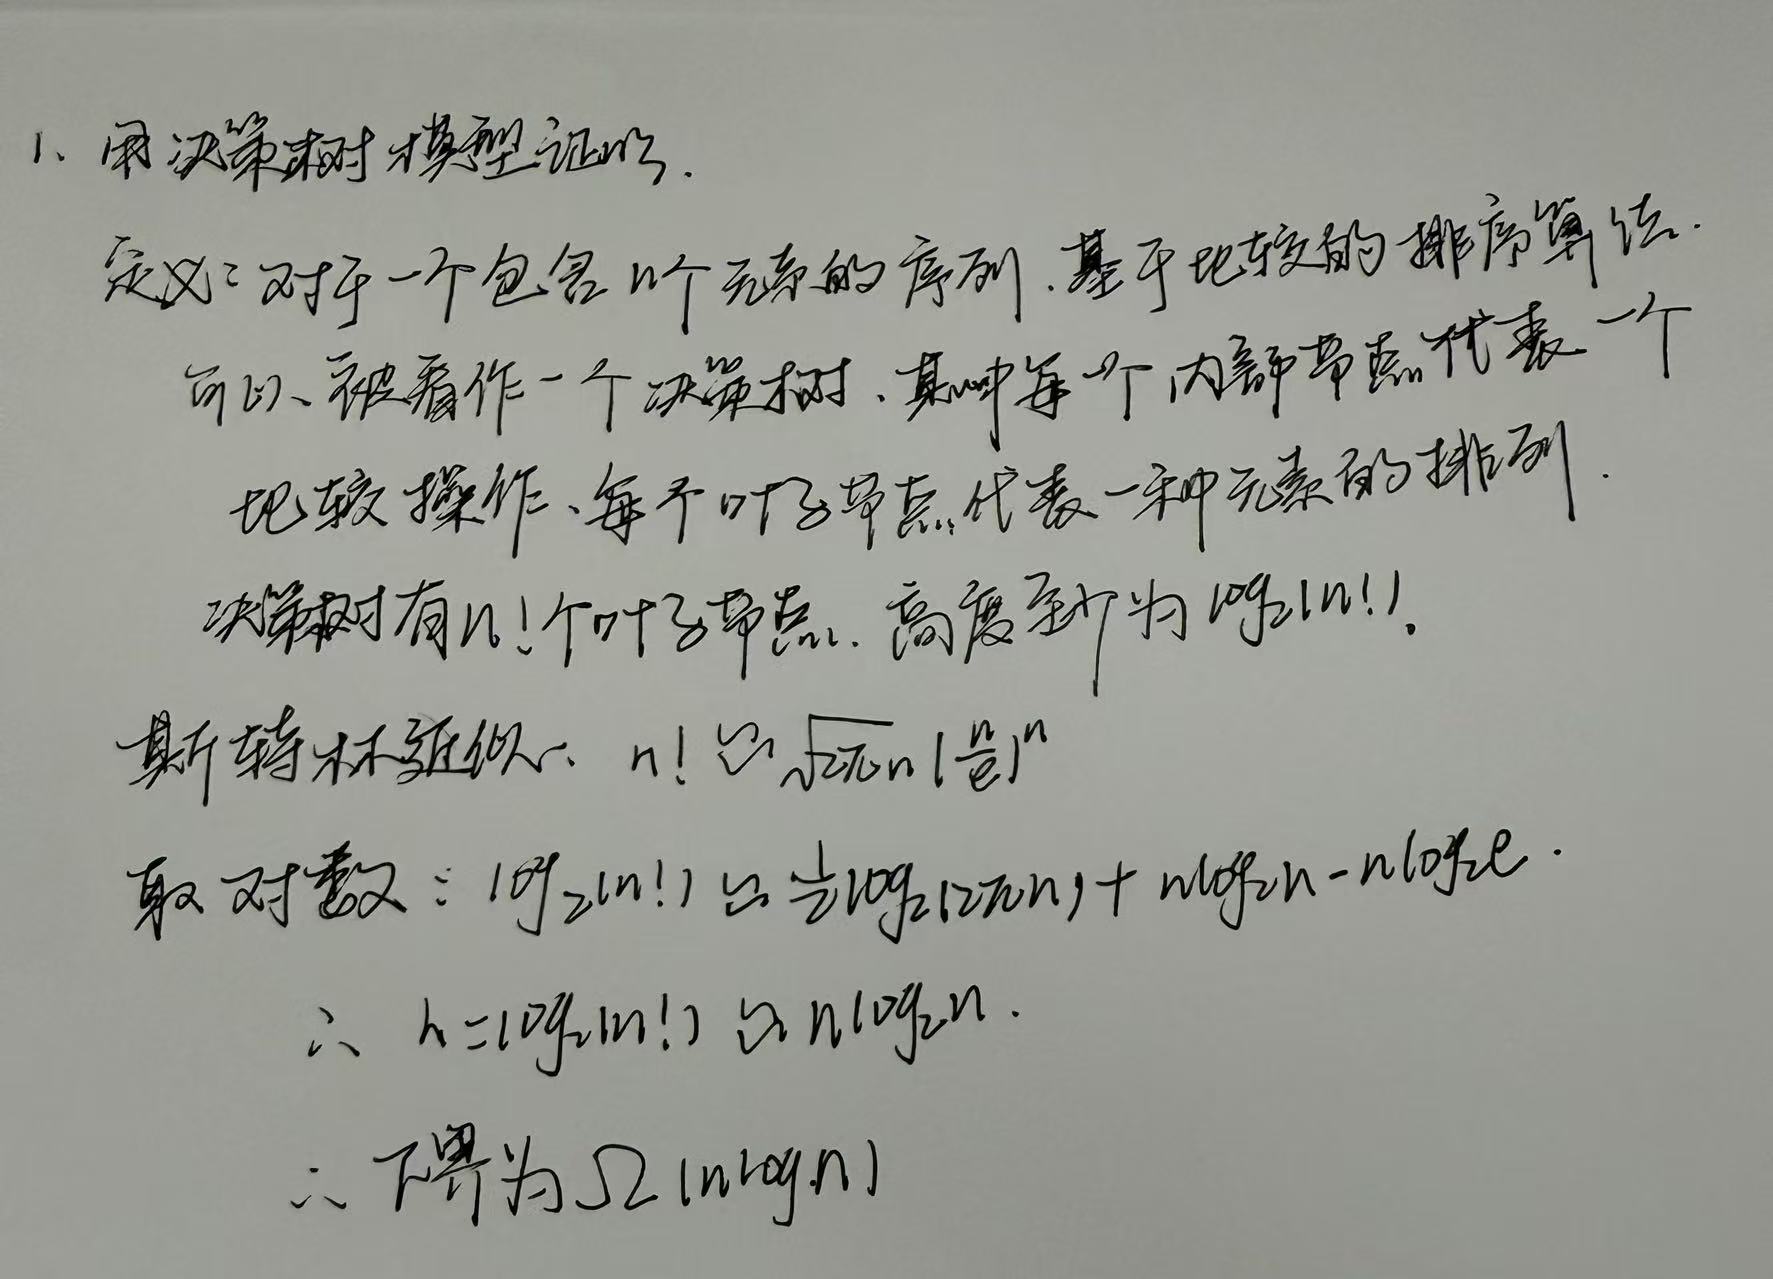 1、用决策树模型证明.
定义:对于一个包含n个元素的序列.基于比较的排序算法.
可以被看作一个决策树、其中每个内部节点代表一个
比较操作、每个叶子节点代表一种元素的排列.
决策树有n!个叶子节点.高度至少为log₂(n!).
斯特林近似、n! ≈ √2πn (n/e)ⁿ
取对数:log₂(n!) ≈ ½log₂(2πn) + nlog₂n - nlog₂e.
∴ h=log₂(n!) ≈ nlog₂n.
∴ 下界为Ω(nlogn)